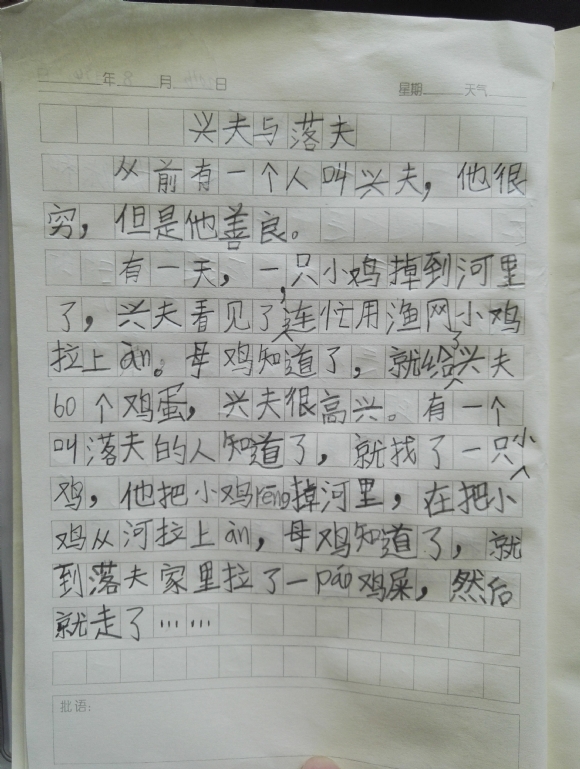 年 8 月 日 星期 天气
兴夫与落夫
从前有一个人叫兴夫，他很
穷，但是他善良。
有一天，一只小鸡掉到河里
了，兴夫看见了，连忙用渔网小鸡
拉上àn。母鸡知道了，就给了兴夫
60个鸡蛋，兴夫很高兴。有一个
叫落夫的人知道了，就找了一只小
鸡，他把小鸡rēng掉河里，在把小
鸡从河拉上àn，母鸡知道了，就
到落夫家里拉了一pāo鸡屎，然后
就走了……
批语：